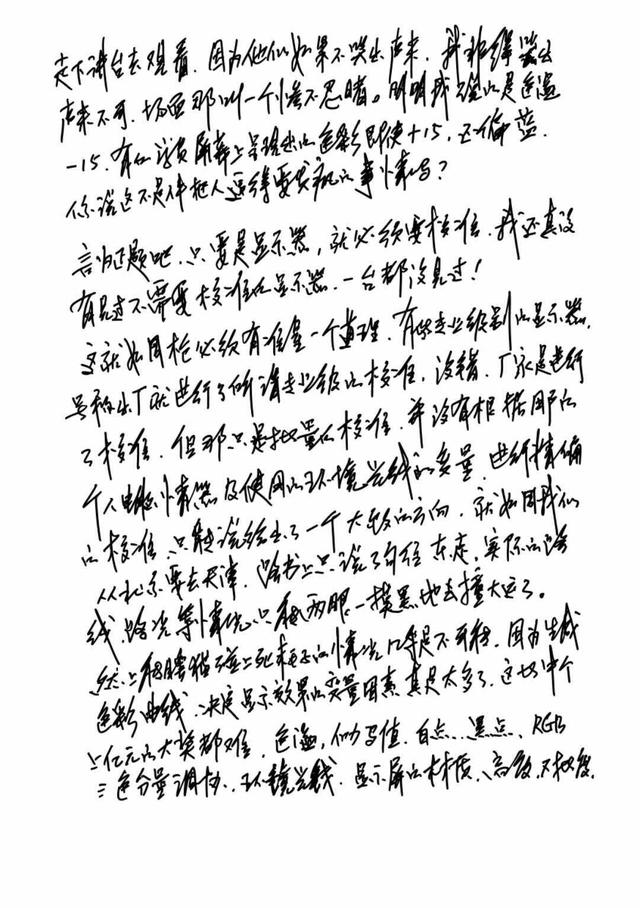 走下讲台去观看，因为他们如果不哭出声来，我非得哭出
声来不可，场面那叫一个惨不忍睹。明明我说的是色温
-15，有的学员屏幕上呈现出的色彩即使+15，还偏蓝，
你说这不是件把人逼得要发疯的事情吗？
言归正题吧，只要是显示器，就必须要校准，我还真没
有见过不需要校准的显示器，一台都没见过！
这就如同枪必须有准星一个道理，有些专业级别的显示器，
号称出厂就进行了所谓专业级的校准，没错，厂家是进行
了校准，但那只是批量的校准，并没有根据用户的
个人电脑，显卡及使用的环境光线的变量，进行精确
的校准，只能说给出了一个大致的方向，就如同我们
从北京要去天津，路书上只说了向往东走，实际的路
线，路况等情况只能两眼一摸黑地去撞大运了。
瞎猫碰上死耗子的情况几乎是不可能，因为生成
色彩曲线，决定显示效果的变量因素真是太多了，这场中个
上亿元的大奖都难，色温，伽马值，白点、黑点、RGB
三色分量调协，环境光线，显示屏的材质，高效，对比度